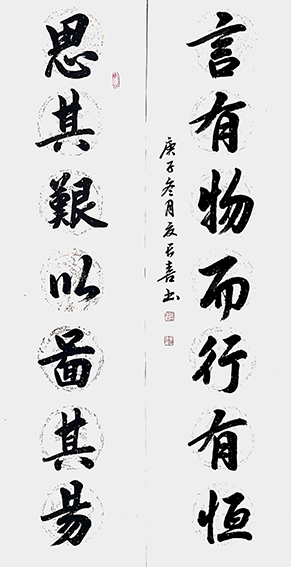 言有物而行有恒
庚子冬月喜书
思其艱以圖其易